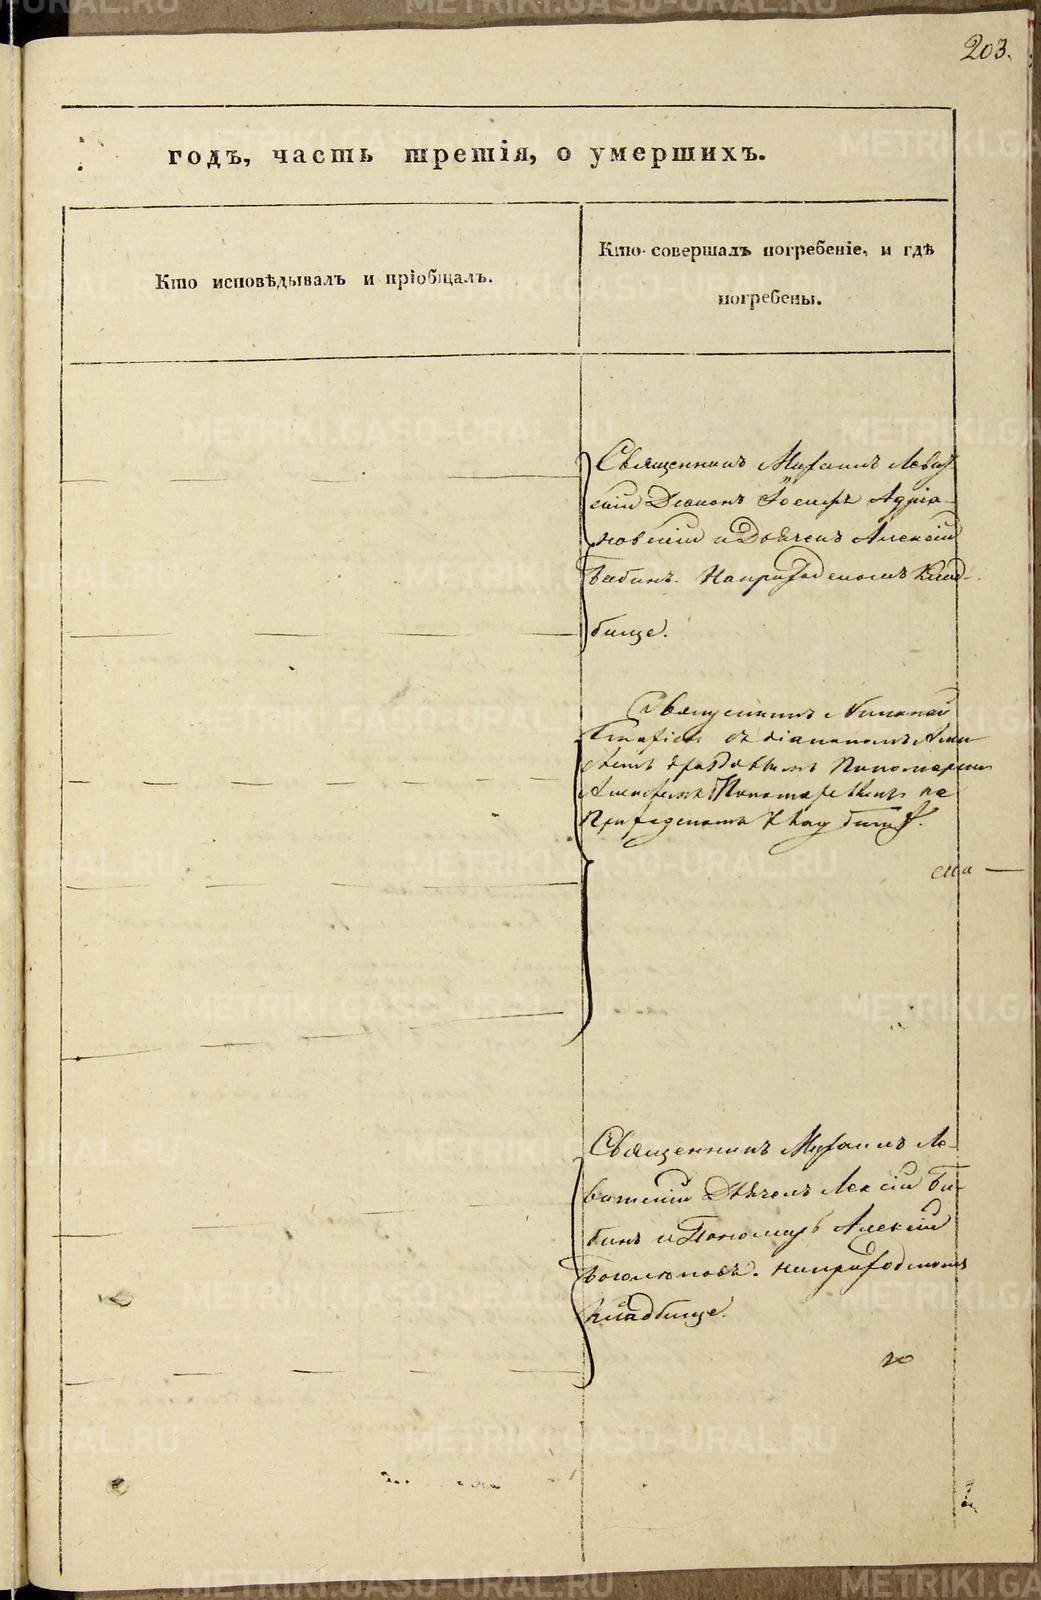 203.
годъ, часть третія, о умершихъ.
Кто исповѣдывалъ и пріобщалъ.
Кто совершалъ погребеніе, и гдѣ
погребены.
Священникъ Михаилъ Левит
скій Діаконъ Іосифъ Адріа-
новскій и Дьячекъ Алексій
Бабинъ. На приходскомъ Клад-
бище.
Священникъ Николай
съ діакономъ
Пономаремъ
на
Приходскомъ Кладбище.
Священникъ Михаилъ Ле-
витскій Дьячекъ Алексій Ба-
бинъ и Пономарь Алексій
Боголѣповъ. на приходскомъ
Кладбище.
METRIKI.GASO-URAL.RU